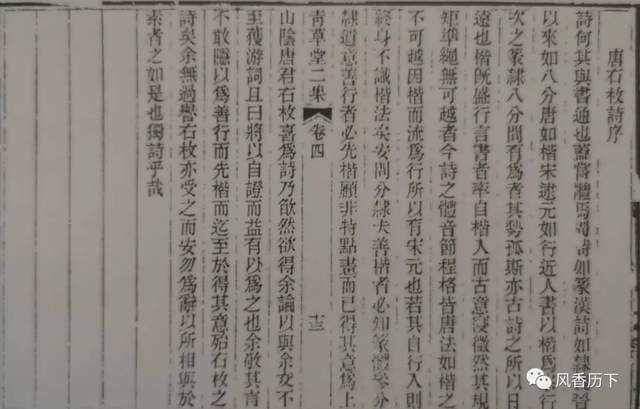 唐石枚詩序
詩何其與書通也蓋嘗體焉詩如篆漢詩如隸晉
以來如八分唐如楷宋逮元如行近人書以楷爲行
次之篆隸八分間有爲者其勢孤斯亦古詩之所以日
遠也楷既盛行言書者率自楷入而古意寖微然其規
矩準繩無可越者今詩之體音節程格皆唐法如楷之
不可越因楷而流爲行所以有宋元也若其自行入則
終身不識楷法矣安問分隸夫善楷者必知篆體參分
隸遒意善行者必先楷顧非特點畫而已得其意爲上
青草堂二集
卷四
十三
山陰唐君石枚喜爲詩乃欿然欲得余論以與余交不
至獲游詞且曰將以自證而益有以爲之也余敬其言
不敢隱以爲善行而先楷而迄至於得其意殆石枚之
詩矣余無過譽石枚亦受之而安勿爲辭以所相與於
素者之如是也獨詩乎哉
风香历下